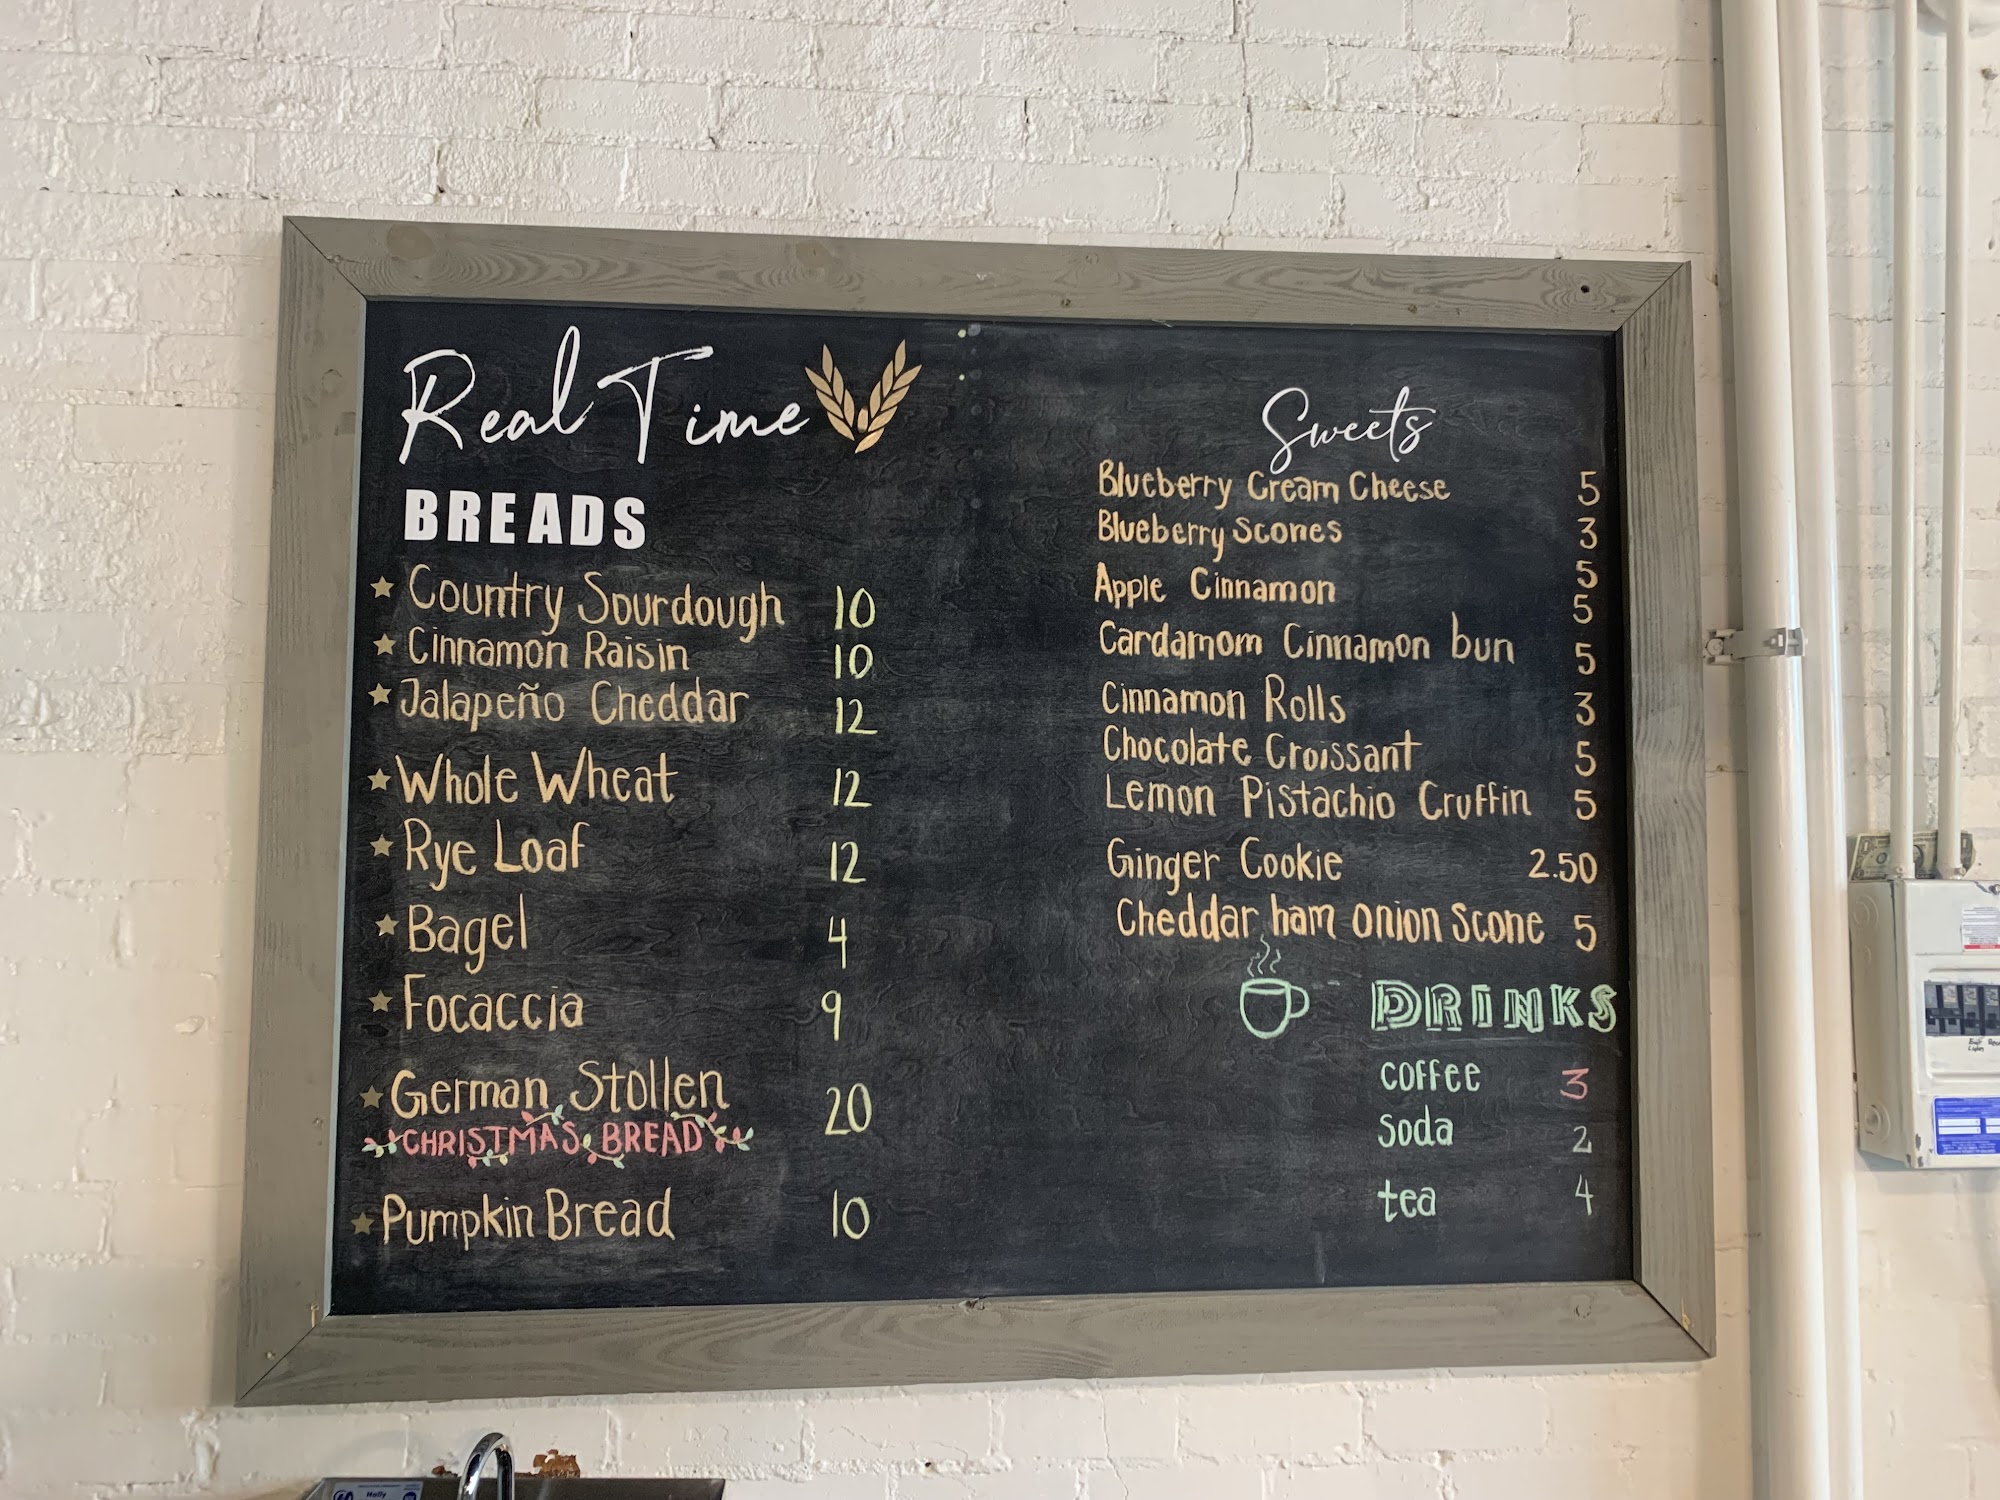 Real Time
BREADS
Country Sourdough 10
Cinnamon Raisin 10
Jalapeño Cheddar 12
Whole Wheat 12
Rye Loaf 12
Bagel 4
Focaccia 9
German Stollen 20
CHRISTMAS BREAD
Pumpkin Bread 10
Sweets
Blueberry Cream Cheese 5
Blueberry Scones 3
Apple Cinnamon 5
5
Cardamom Cinnamon bun 5
Cinnamon Rolls 3
Chocolate Croissant 5
Lemon Pistachio Cruffin 5
Ginger Cookie 2.50
Cheddar ham onion Scone 5
DRINKS
coffee 3
Soda 2
tea 4